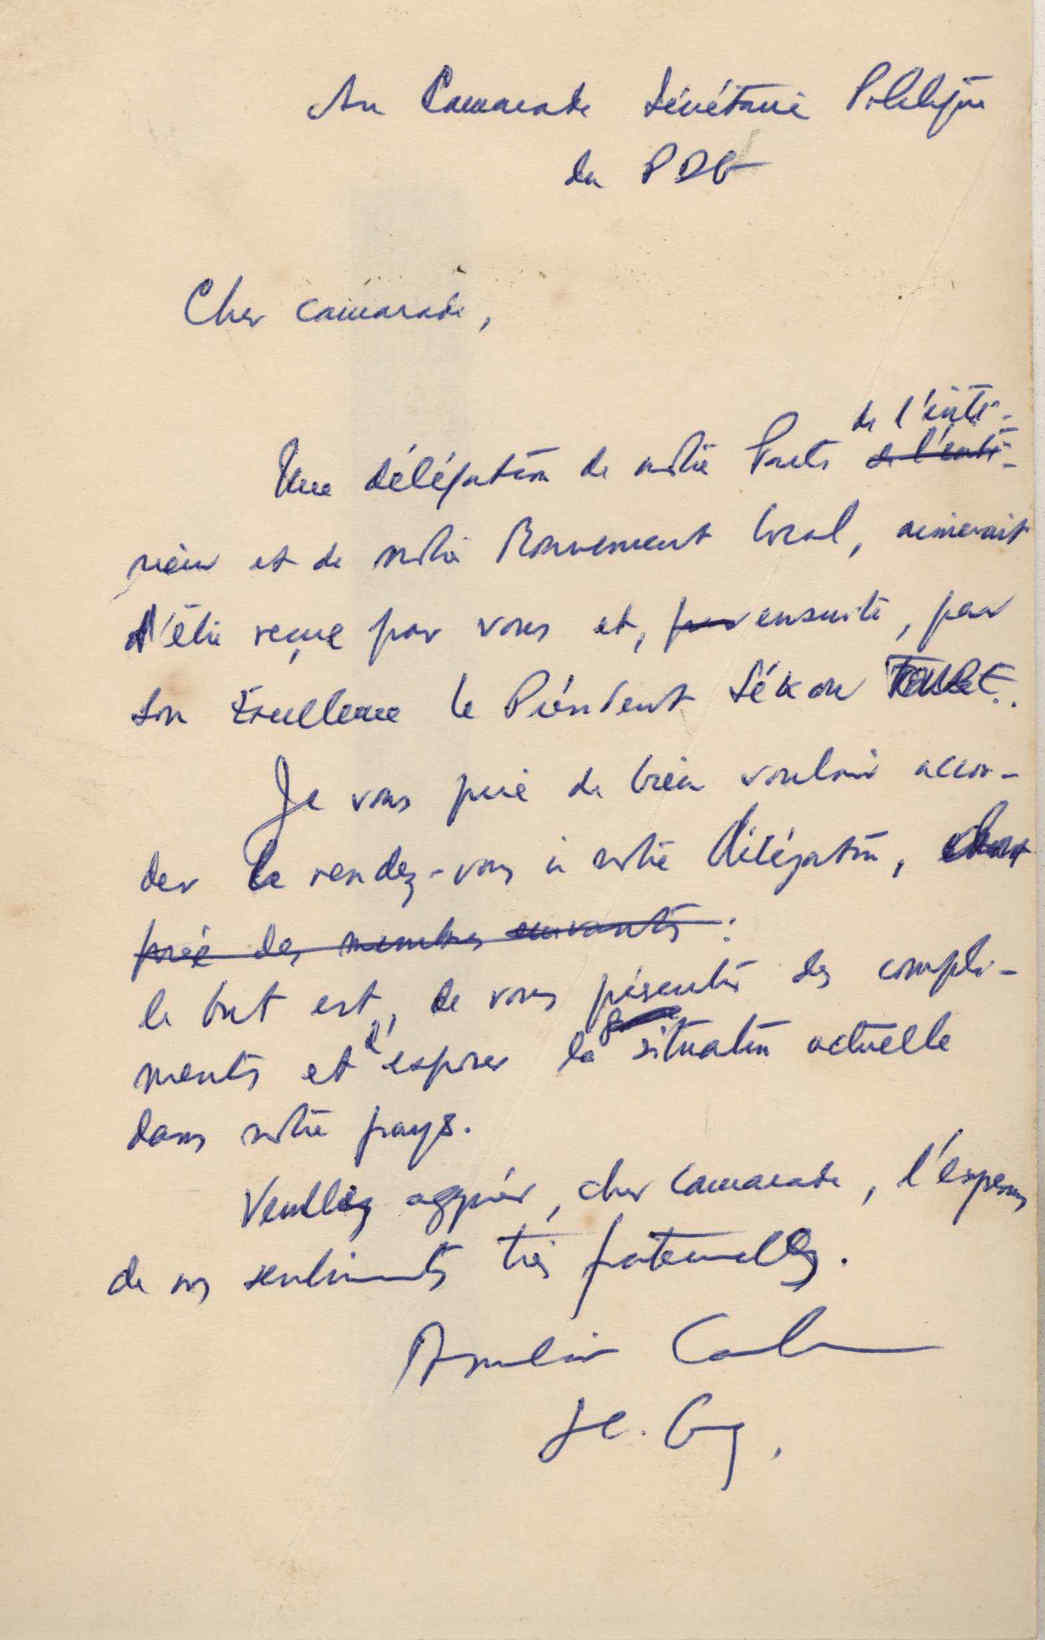 Au Camarade Sécrétaire Politique
du PDG
Cher camarade,
de l'inté-
Une délégation de notre Parti de l'inté-
rieur et de notre Mouvement local, aimerait
d'être reçue par vous et, par ensuite, par
Son Excellence le Président Sékou Touré.
Je vous prie de bien vouloir accor-
der le rendez-vous à notre Délégation,
des membres suivants :
le but est, de vous présenter des compli-
ments et d'exposer la situation actuelle
dans notre pays.
Veuillez agréer, cher camarade, l'express
de nos sentiments très fraternelles.
Amílcar Cabral
Sec. Ger,